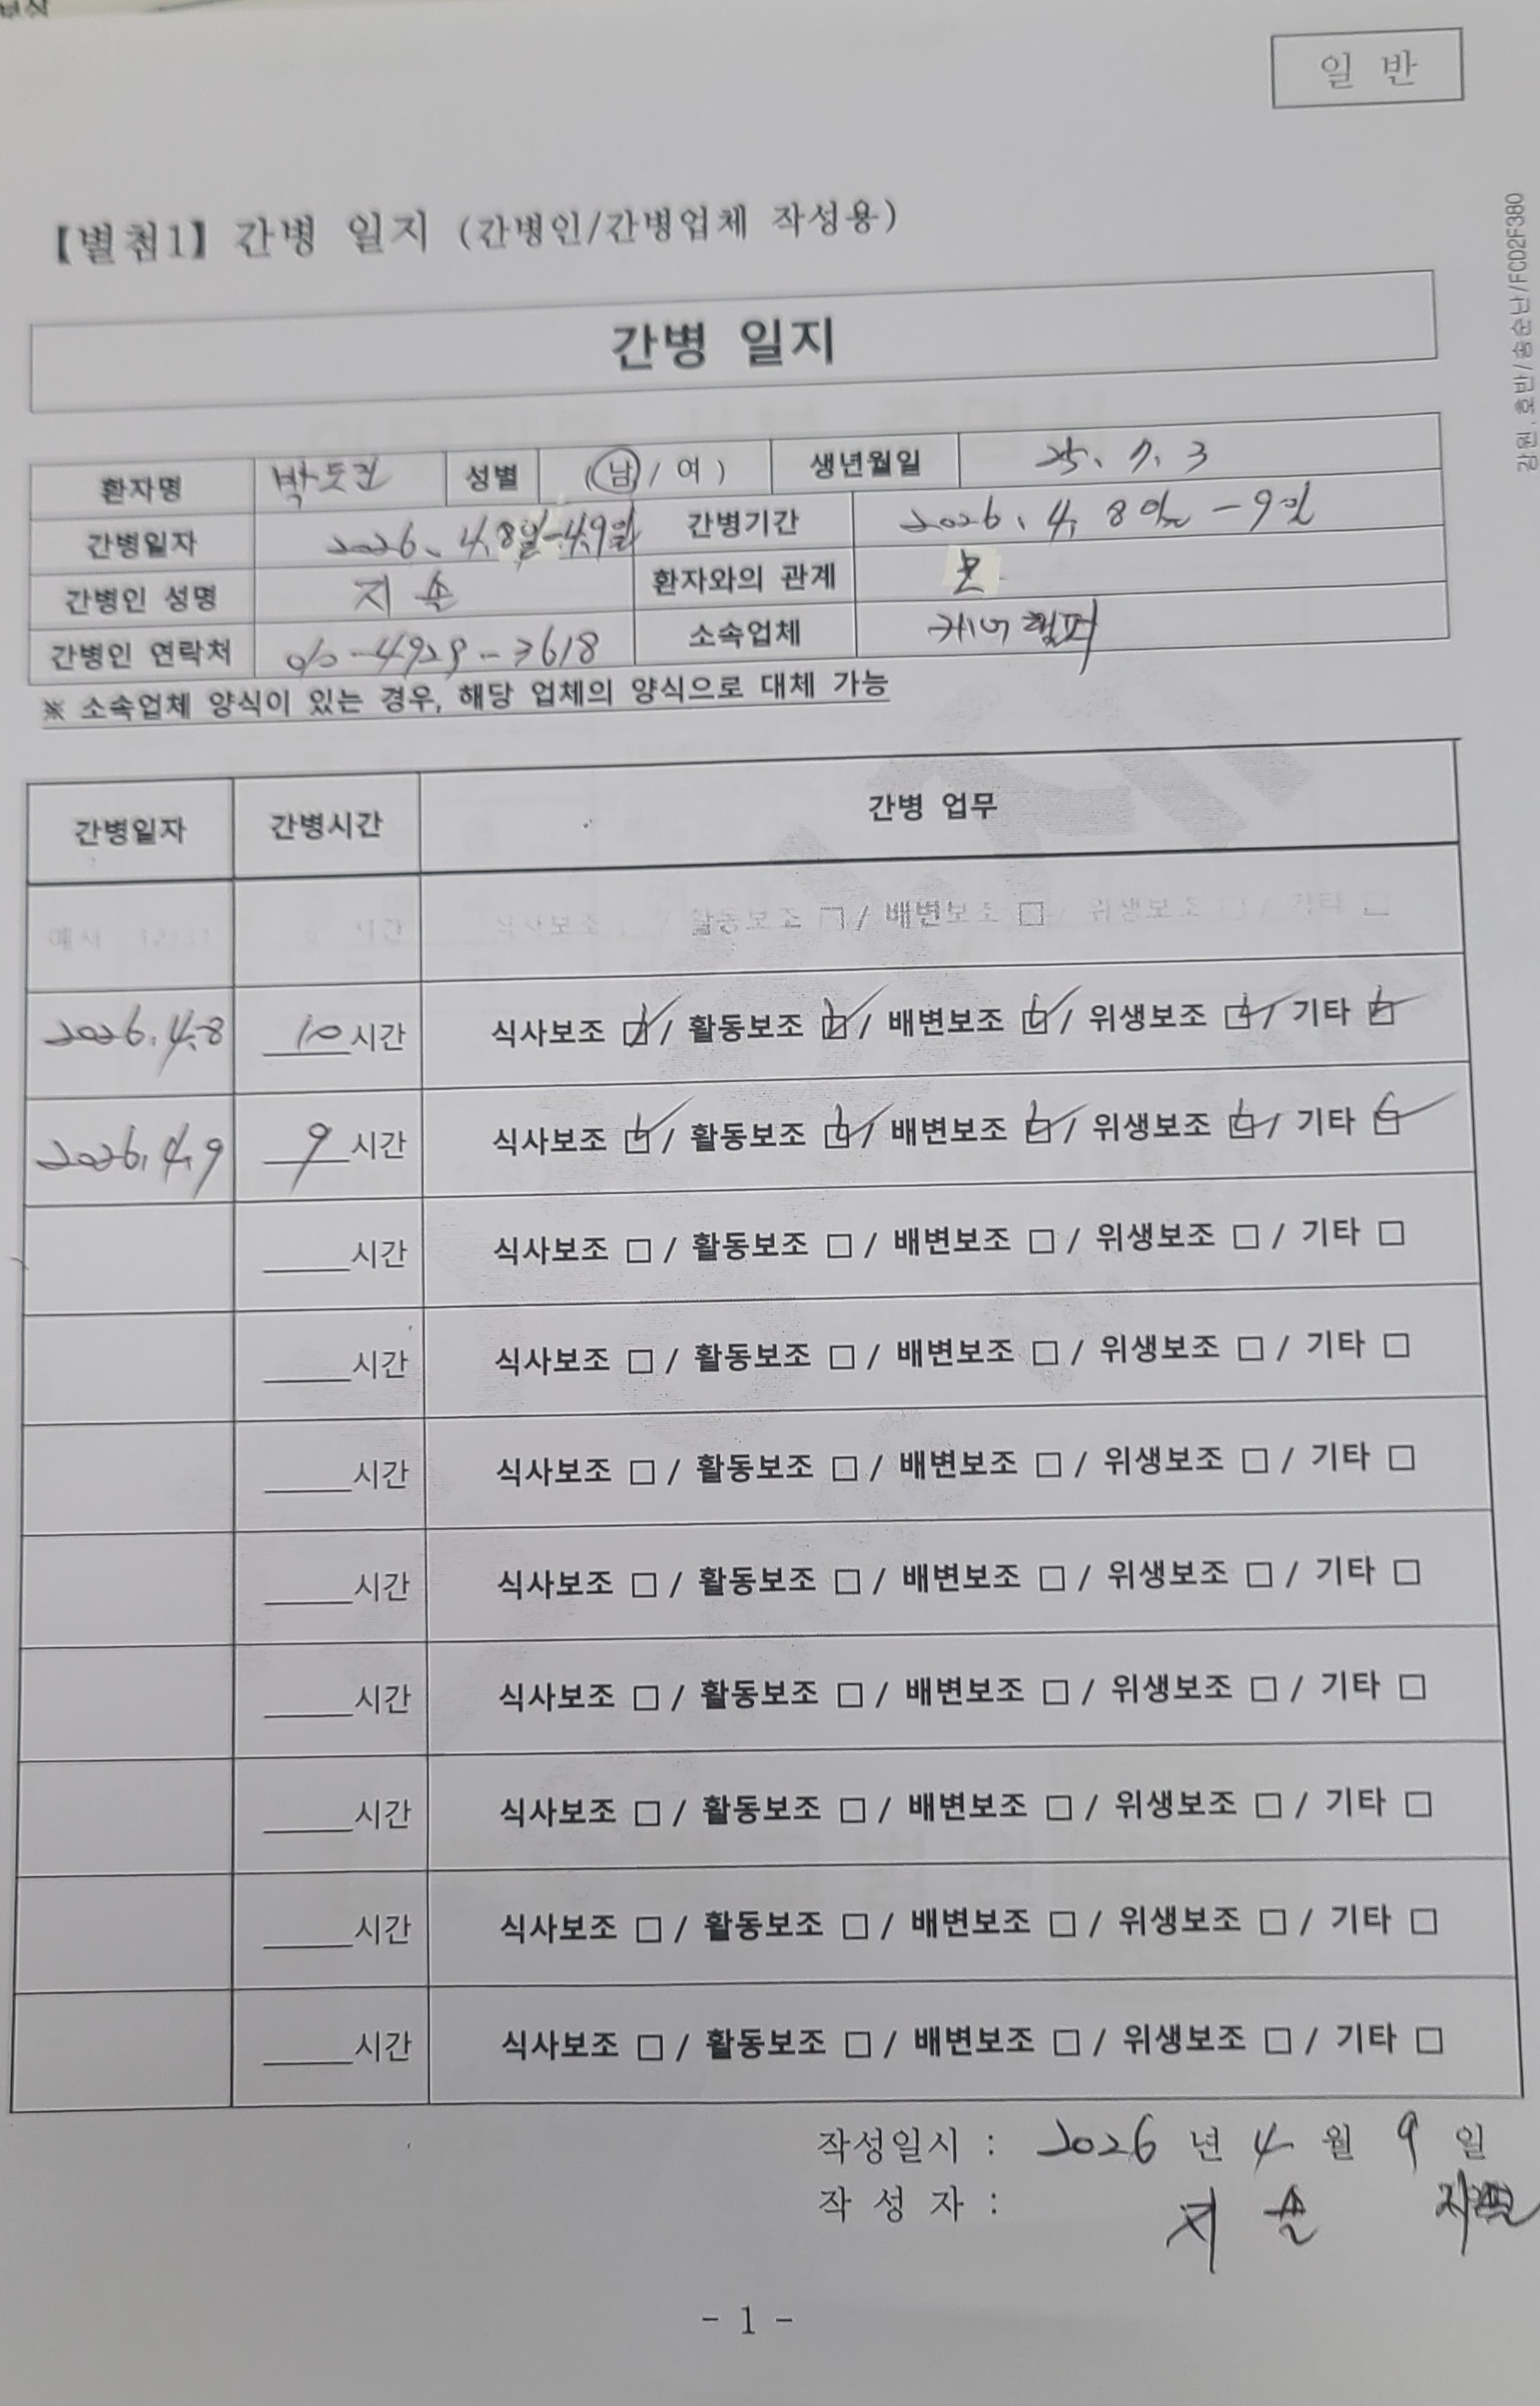 일 반
【별첨1】 간병 일지 (간병인/간병업체 작성용)
간병 일지
환자명 박도권 성별 (남/여) 생년월일 25. 7. 3
간병일자 2026. 4.8일-4.9일 간병기간 2026. 4. 8일-9일
간병인 성명 지순 환자와의 관계 모
간병인 연락처 010-4929-3618 소속업체 케어헬퍼
※ 소속업체 양식이 있는 경우, 해당 업체의 양식으로 대체 가능
간병일자 간병시간 간병 업무
예시 시간 식사보조 활동보조 □ / 배변보조 □ / 위생보조 □ / 기타 □
2026.4.8 10시간 식사보조 ☑ / 활동보조 ☑ / 배변보조 ☑ / 위생보조 ☑ / 기타 ☑
2026.4.9 9시간 식사보조 ☑ / 활동보조 ☑ / 배변보조 ☑ / 위생보조 ☑ / 기타 ☑
____시간 식사보조 □ / 활동보조 □ / 배변보조 □ / 위생보조 □ / 기타 □
____시간 식사보조 □ / 활동보조 □ / 배변보조 □ / 위생보조 □ / 기타 □
____시간 식사보조 □ / 활동보조 □ / 배변보조 □ / 위생보조 □ / 기타 □
____시간 식사보조 □ / 활동보조 □ / 배변보조 □ / 위생보조 □ / 기타 □
____시간 식사보조 □ / 활동보조 □ / 배변보조 □ / 위생보조 □ / 기타 □
____시간 식사보조 □ / 활동보조 □ / 배변보조 □ / 위생보조 □ / 기타 □
____시간 식사보조 □ / 활동보조 □ / 배변보조 □ / 위생보조 □ / 기타 □
____시간 식사보조 □ / 활동보조 □ / 배변보조 □ / 위생보조 □ / 기타 □
작성일시 : 2026 년 4 월 9 일
작 성 자 : 지 순
- 1 -
강원.호반/송순난/FCD2F380